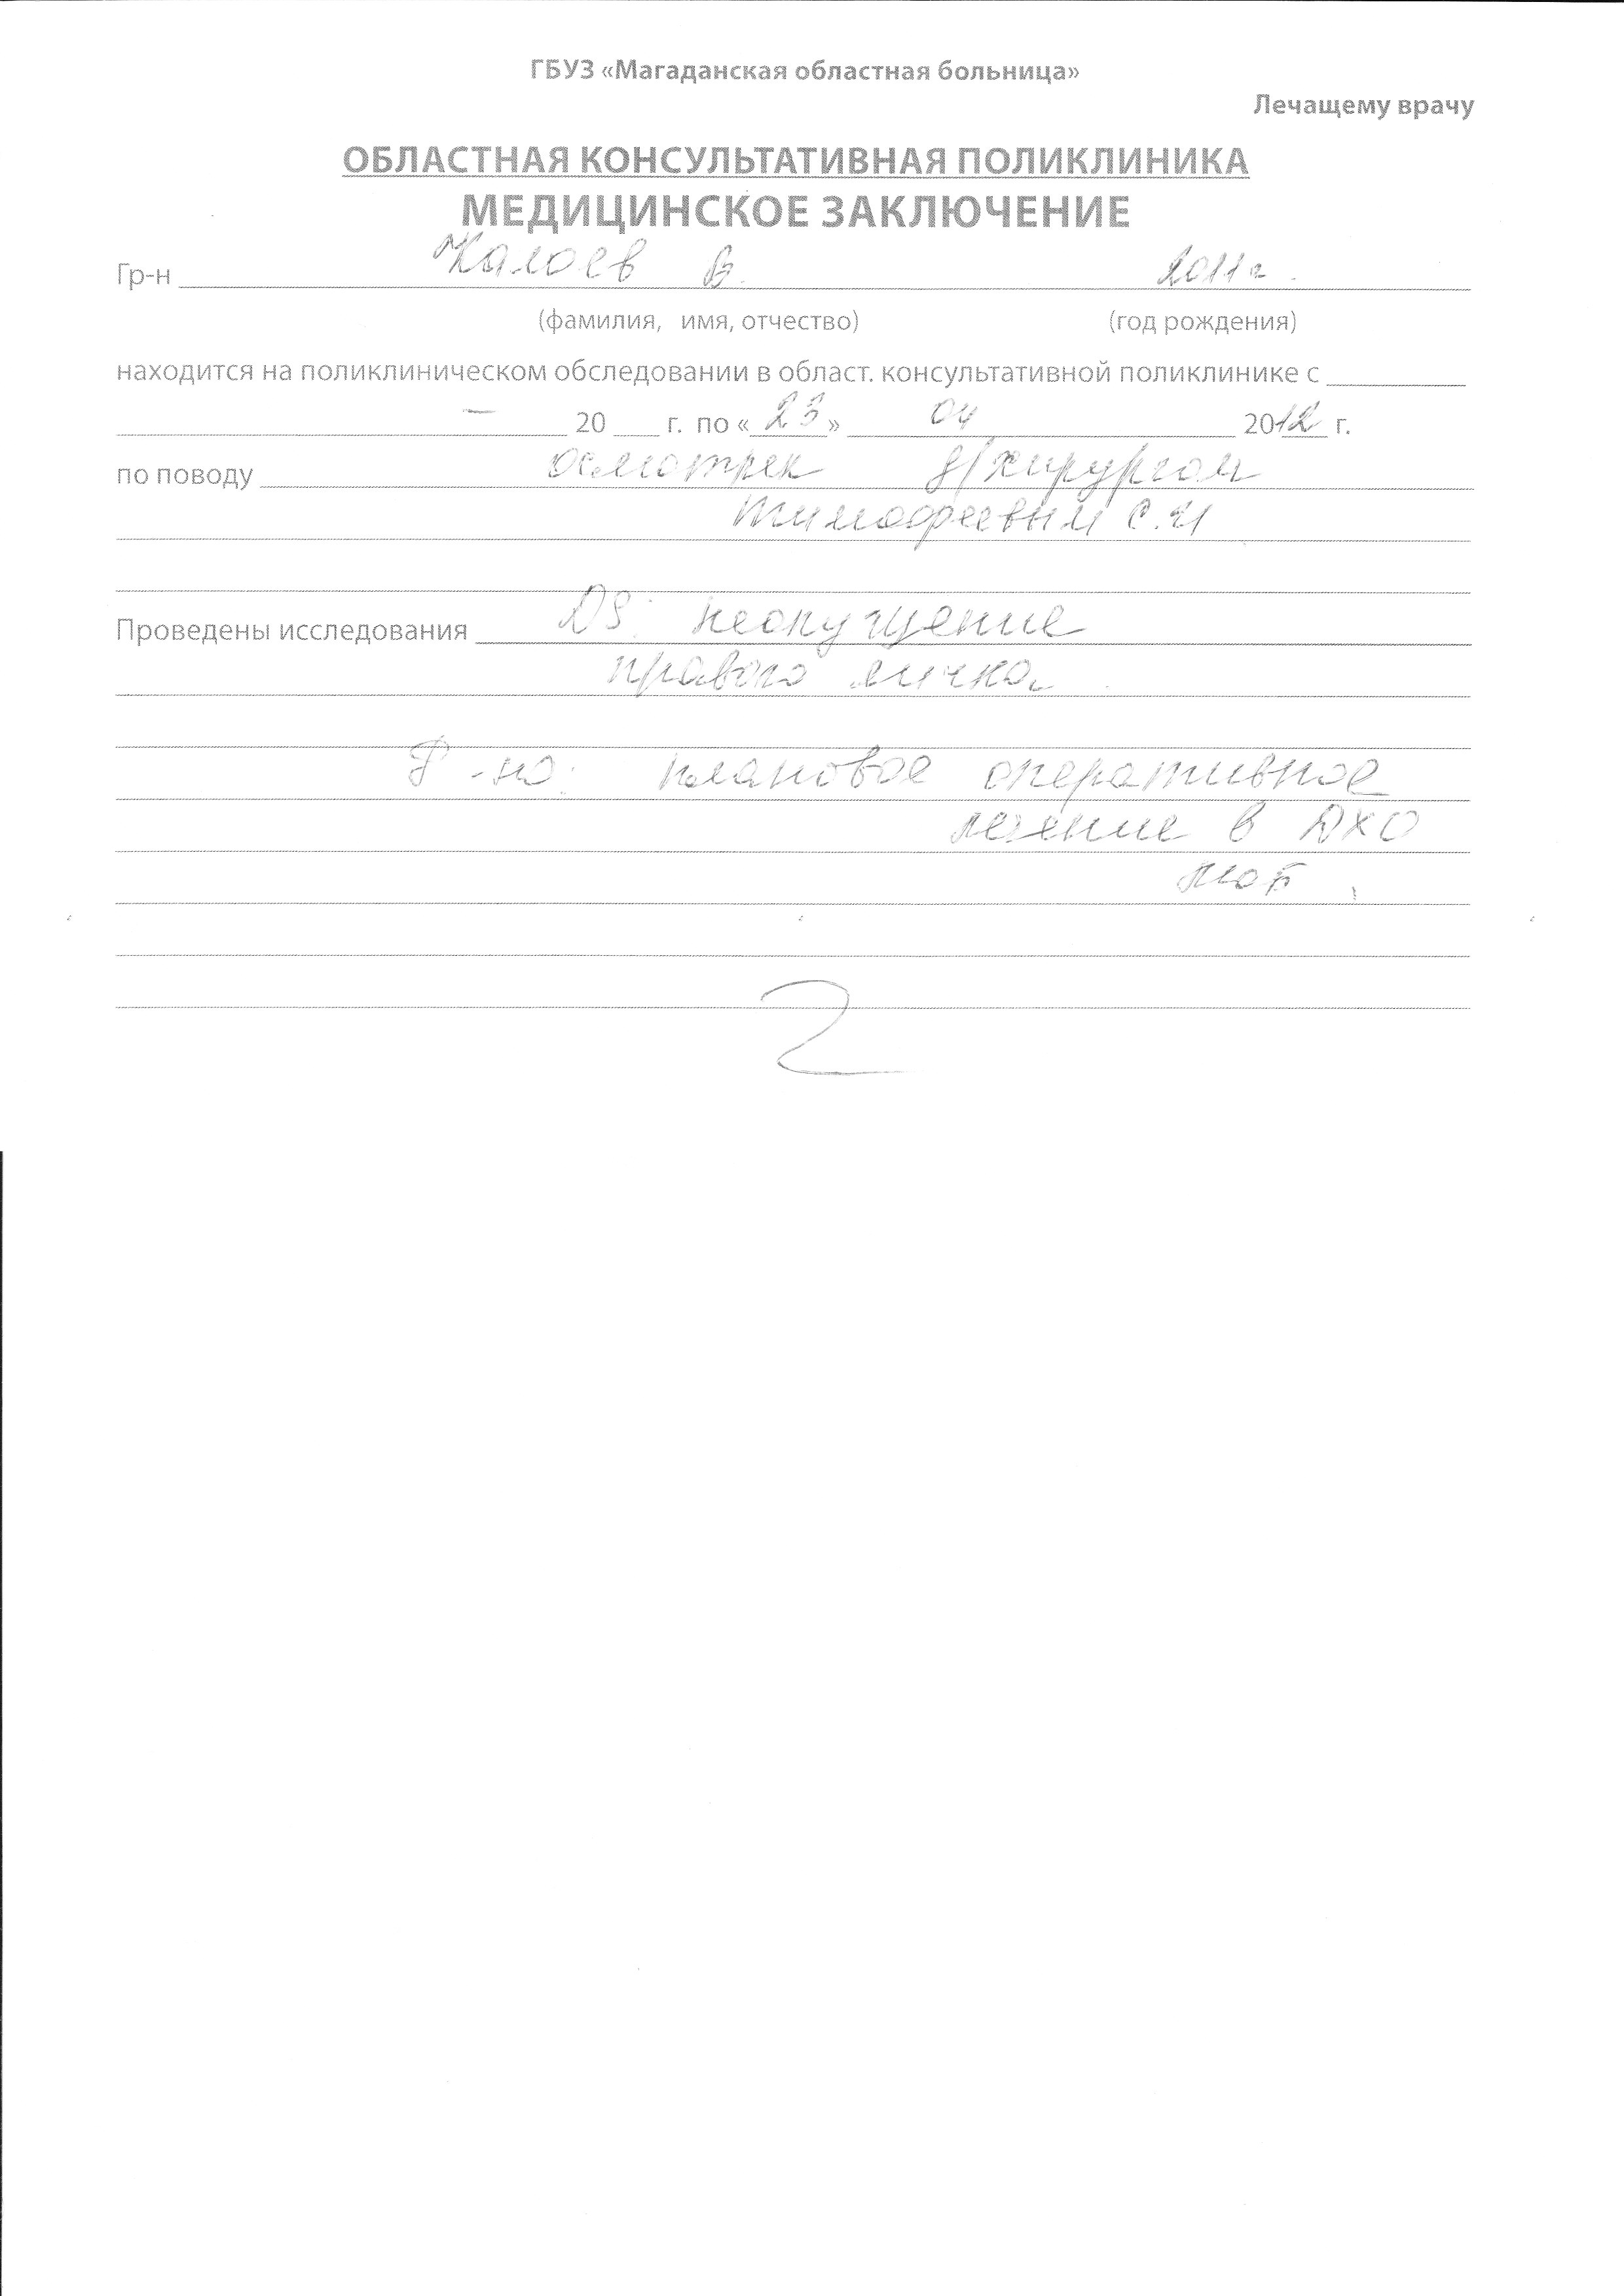 ГБУЗ «Магаданская областная больница»
Лечащему врачу
ОБЛАСТНАЯ КОНСУЛЬТАТИВНАЯ ПОЛИКЛИНИКА
МЕДИЦИНСКОЕ ЗАКЛЮЧЕНИЕ
Гр-н Калоев В. 2011 г.
(фамилия, имя, отчество) (год рождения)
находится на поликлиническом обследовании в област. консультативной поликлинике с
– 20 г. по «23» 04 2012 г.
по поводу осмотрен д/хирургом
Тимофеевым С.И
Проведены исследования DS: неопущение
правого яичка
Р-но: плановое оперативное
лечение в ДХО
МОБ